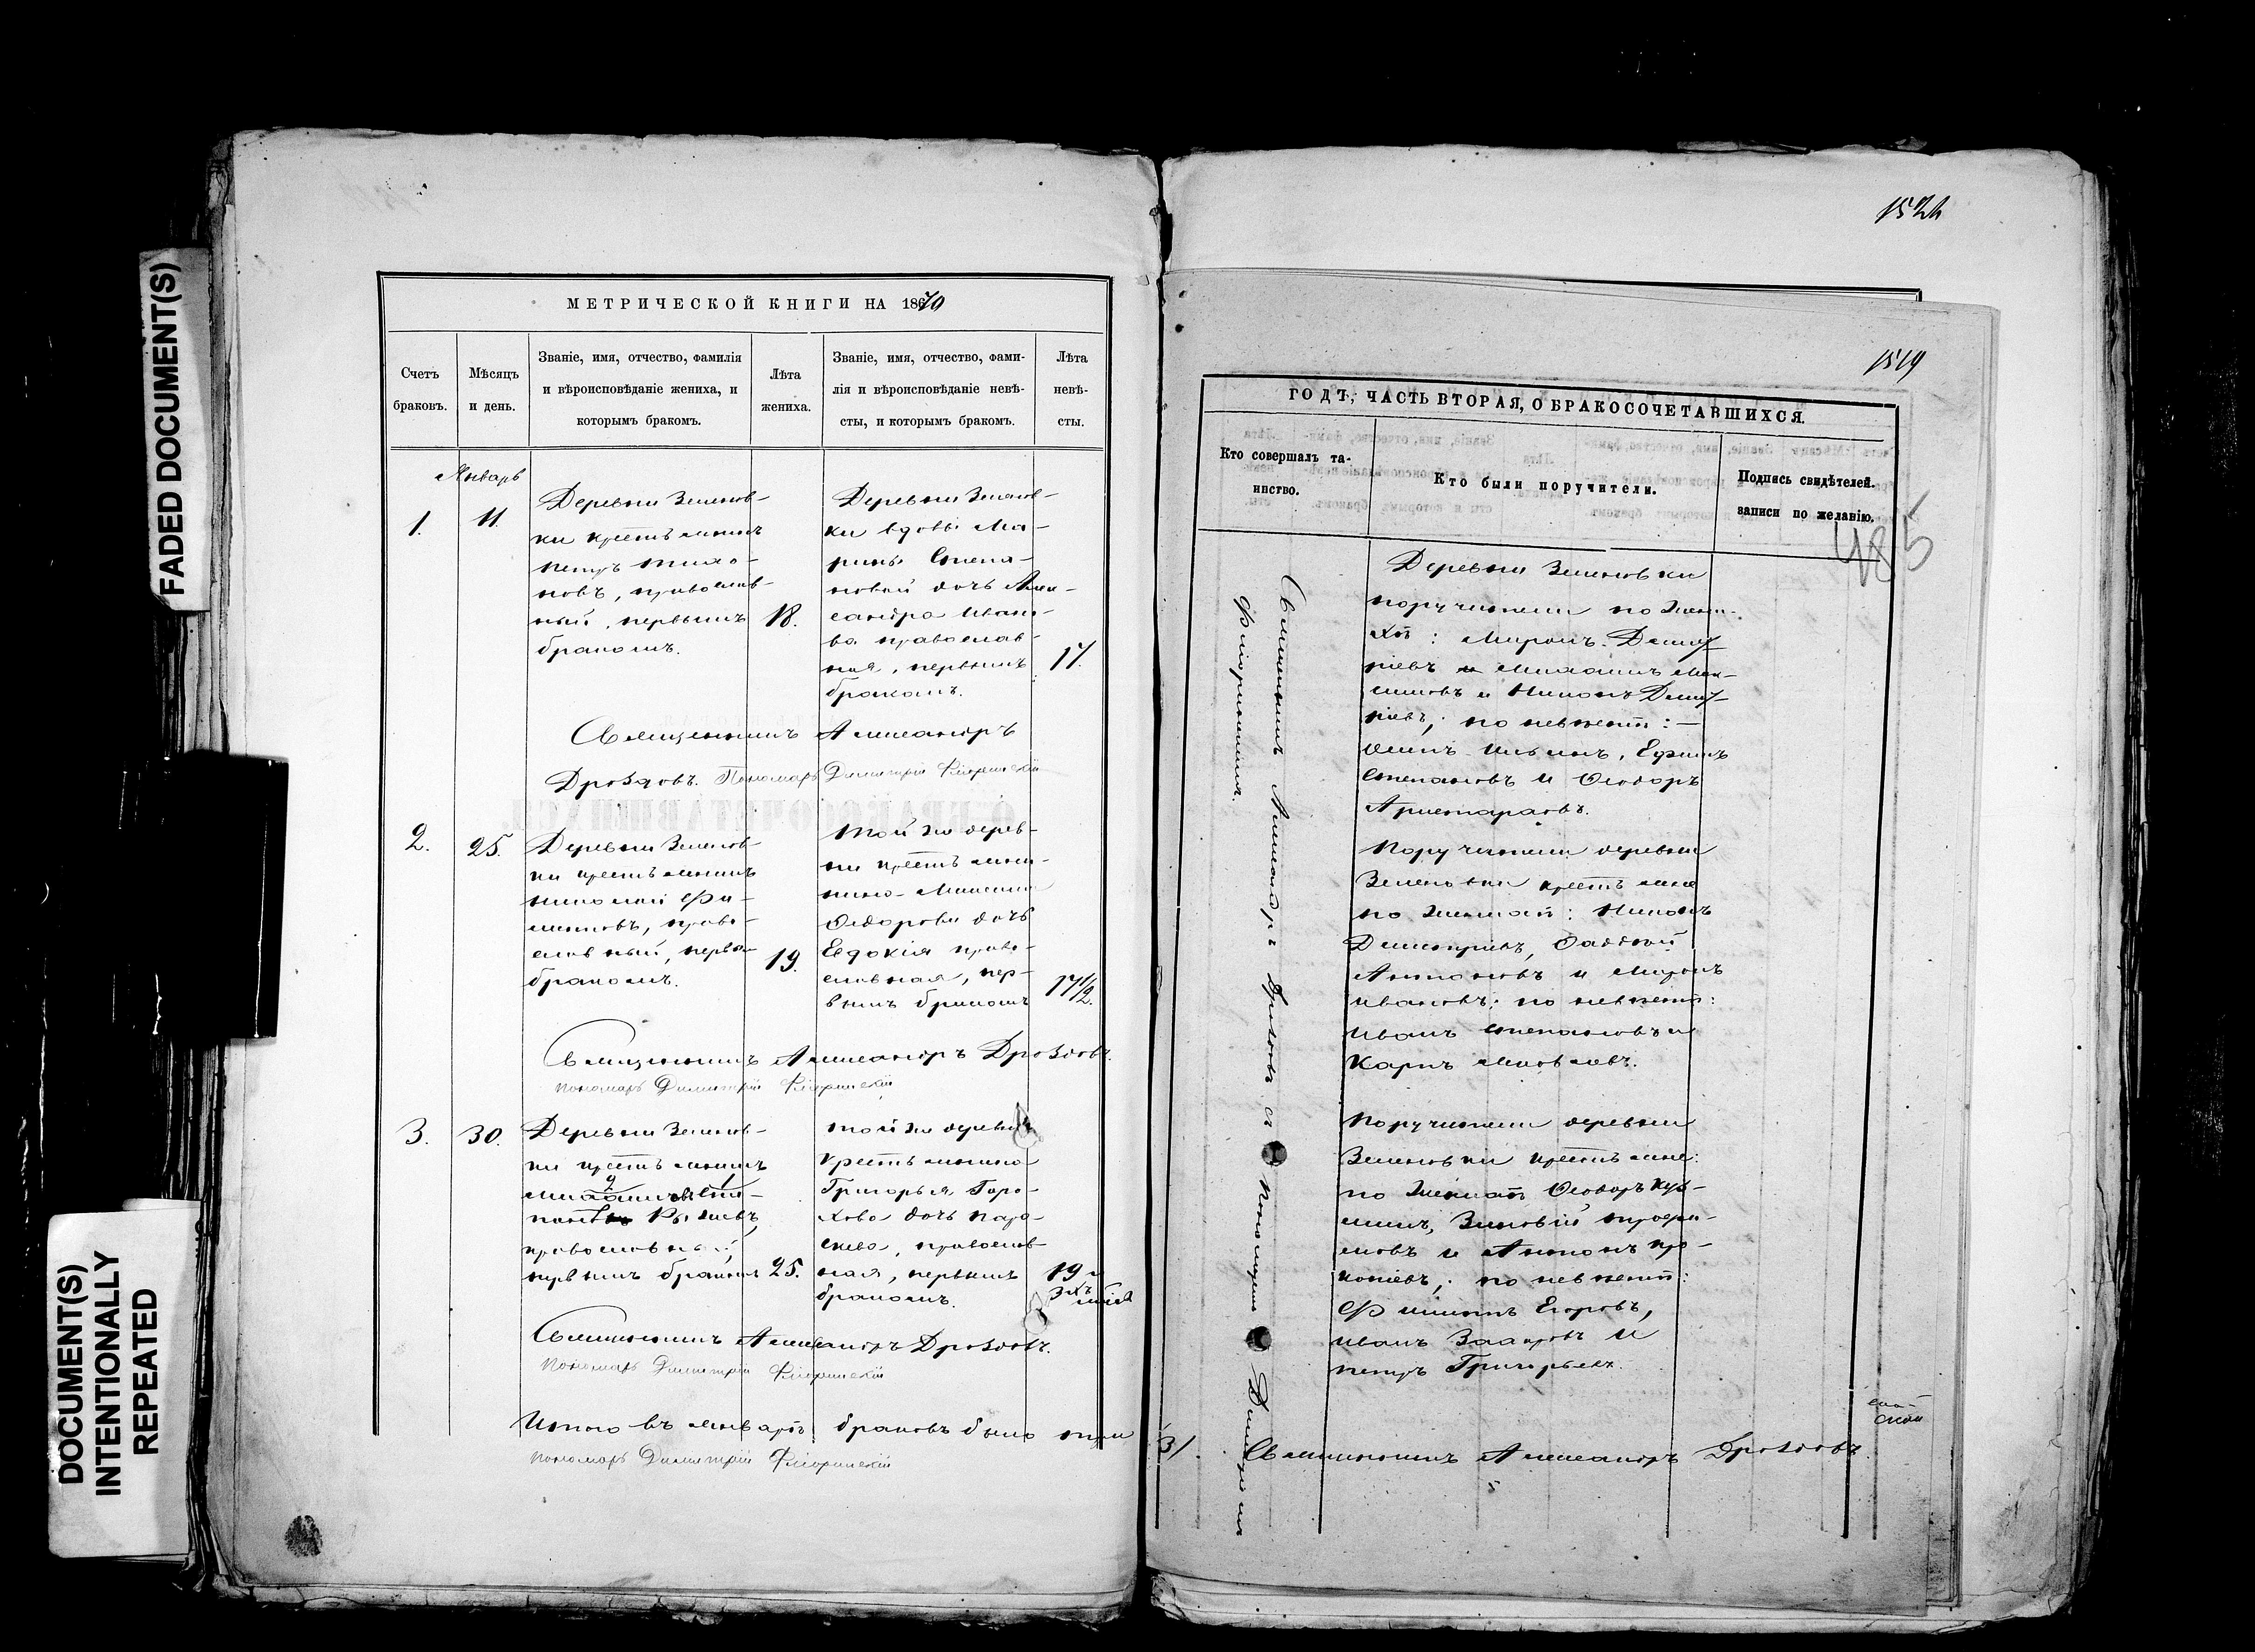 FADED DOCUMENT(S)
DOCUMENT(S)
INTENTIONALLY
REPEATED
МЕТРИЧЕСКОЙ КНИГИ НА 1870
Счетъ
браковъ.
Мѣсяцъ
и день.
Званіе, имя, отчество, фамилія
и вѣроисповѣданіе жениха, и
которымъ бракомъ.
Лѣта
жениха.
Званіе, имя, отчество, фами-
лія и вѣроисповѣданіе невѣ-
сты, и которымъ бракомъ.
Лѣта
невѣ-
сты.
Январь
1.
11.
Деревни Зеленов-
ки крестьянинъ
Петръ Тихо-
новъ, православ-
ный, первымъ
бракомъ.
18.
Деревни Зеленов-
ки вдовы Ма-
рины Степа-
новой дочь Алек-
сандра Ивано-
ва православ-
ная, первымъ
бракомъ.
17.
Священникъ Александръ
Дроздовъ. Пономарь Димитрій Флоринскій
2.
25.
Деревни Зеленов-
ки крестьянинъ
Николай Фи-
липовъ, право-
славный, первы
бракомъ.
19.
Той же дерев-
ни крестьяни-
нина
Ѳедорова дочь
Евдокія право-
славная, пер-
вымъ бракомъ
17 1/2.
Священникъ Александръ Дроздовъ.
пономарь Димитрій Флоринскій
3.
30.
Деревни Зеленов-
ки крестьянинъ
православный,
первымъ бракомъ
25.
Той же деревни
крестьянина
Григорья Горо-
хова дочь Пара-
скева, православ-
ная, первымъ
бракомъ.
19 и
3хъ
Священникъ Александръ Дроздовъ.
пономарь Димитрій Флоринскій
Итого въ январѣ браковъ было три
пономарь Димитрій Флоринскій
1519
ГОДЪ, ЧАСТЬ ВТОРАЯ, О БРАКОСОЧЕТАВШИХСЯ.
Кто совершалъ та-
инство.
Кто были поручители.
Подпись свидѣтелей.
записи по желанію.
485
Священникъ Александръ Дроздовъ съ пономаремъ Димитріемъ
Флоринскимъ.
Деревни Зеленовки
поручители по жени-
хѣ: Миронъ Димит-
ріевъ Михаилъ Мак-
симовъ и Никонъ Димит-
ріевъ; по невѣстѣ: —
Ильинъ, Ефимъ
Степановъ и Ѳеодоръ
Аристарховъ.
Поручители деревни
Зеленовки крестьяне
по женихѣ: Никонъ
Димитріевъ, Ѳаддей
Антоновъ и Миронъ
Ивановъ; по невѣстѣ:
Иванъ Степановъ и
Карпъ Яковлевъ.
Поручители деревни
Зеленовки крестьяне:
по женихѣ Ѳеодоръ Кузь-
минъ, Зиновій Трофи-
мовъ и Антонъ Про-
копіевъ; по невѣстѣ:
Филипъ Егоровъ,
Иванъ Захаровъ и
Петръ Григорьевъ.
3/. Священникъ Александръ Дроздовъ.